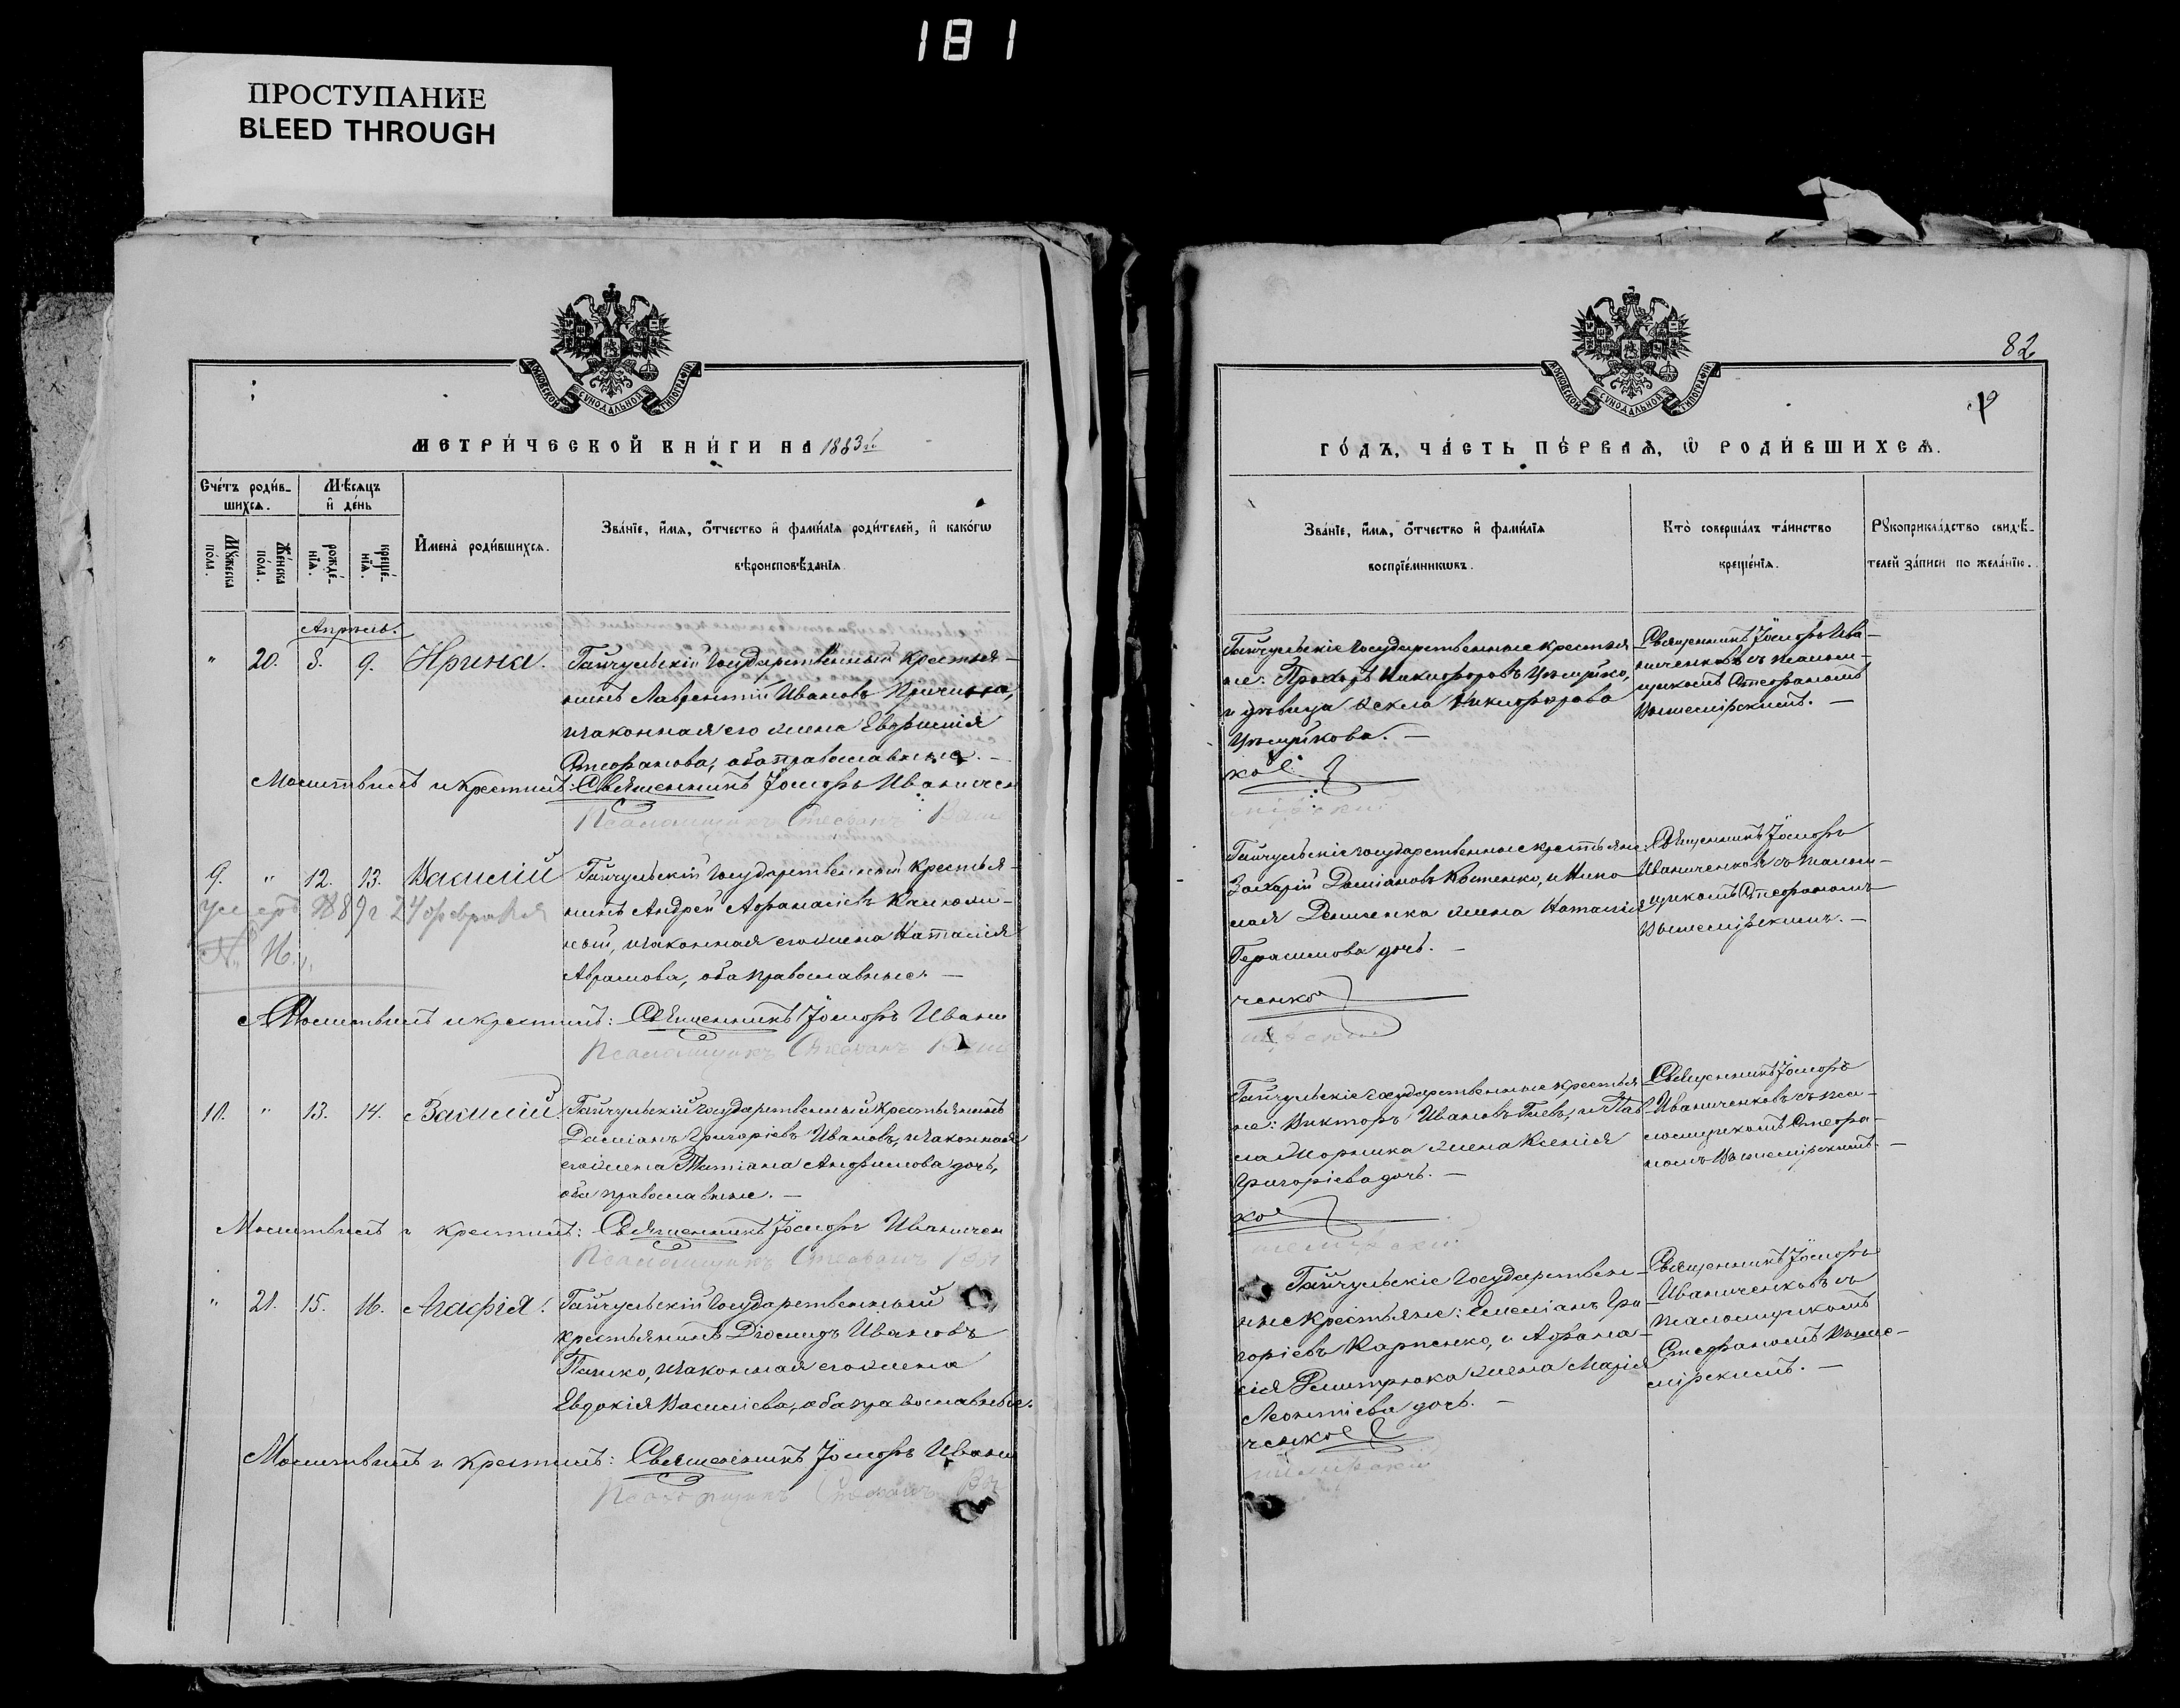 181
ПРОСТУПАНИЕ
BLEED THROUGH
МОСКОВСКОЙ СУНОДАЛЬНОЙ ТИПОГРАФІИ
МЕТРИ́ЧЕСКОЙ КНИ́ГИ НА 1883й
Сче́тъ роди́в-
шихся.
Мѣ́сяцъ
и҆ де́нь
Мꙋ́жеска
по́ла.
Же́нска
по́ла.
рожде́-
нїѧ.
креще́-
нїѧ.
И҆мена̀ роди́вшихсѧ.
Зва́нїе, и҆́мѧ, ѻ҆́тчество и҆ фами́лїѧ роди́телей, и҆ како́гѡ
вѣроисповѣ́данїѧ
Апрѣль.
" 20. 8. 9. Ирина. Гайчульскій государственный крестья-
нинъ Лаврентій Ивановъ
и законная его жена Евфимія
Стефанова, оба православные. —
Молитвилъ и крестилъ: Священникъ Іосифъ Иваничен
Псаломщикъ Стефанъ Выш
9. " 12. 13. Василій Гайчульскій государственный крестья-
нинъ Андрей Афанасіевъ
и законная его жена Наталія
Аврамова, оба православные. —
1889 г 24 февраля
Молитвилъ и крестилъ: Священникъ Іосифъ Ивани
Псаломщикъ Стефанъ Выше
10. " 13. 14. Василій. Гайчульскій государственный крестьянинъ
Даміанъ Григоріевъ Ивановъ, и законная
его жена Татіана Анфимова дочь,
оба православные. —
Молитвилъ и крестилъ: Священникъ Іосифъ Иваничен
Псаломщикъ Стефанъ Вы
" 21. 15. 16. Агафія. Гайчульскій государственный
крестьянинъ Діомидъ Ивановъ
и законная его жена
Евдокія Васильева, оба православные.
Молитвилъ и крестилъ: Священникъ Іосифъ Ивани
Псаломщикъ Стефанъ Вы
82
МОСКОВСКОЙ СУНОДАЛЬНОЙ ТИПОГРАФІИ
ГО́ДЪ, ЧА́СТЬ ПЕ́РВАѦ, Ѡ҆ РОДИ́ВШИХСѦ.
Зва́нїе, и҆́мѧ, ѻ҆́тчество и҆ фами́лїѧ
воспрїе́мникѡвъ.
Кто̀ соверша́лъ та́инство
креще́нїѧ.
Рꙋкоприкла́дство свидѣ́-
телей за́писи по жела́нїю.
Гайчульскіе государственные крестья-
не: Прохоръ Никифоровъ
и дѣвица Никифорова
Священникъ Іосифъ Ива-
ниченковъ съ псалом-
щикомъ Стефаномъ
Вышемірскимъ. —
ко
мірскій
Гайчульскіе государственные крестьяне:
Захарій Даміановъ Костенко, и Нико-
лая Денисенка жена Наталія
Герасимова дочь. —
Священникъ Іосифъ
Иваниченковъ съ псалом-
щикомъ Стефаномъ
Вышемірскимъ. —
ченко
мірскій
Гайчульскіе государственные крестья-
не: Викторъ Ивановъ Гаевъ, и Пав-
ла жена Ксенія
Григоріева дочь. —
Священникъ Іосифъ
Иваниченковъ съ пса-
ломщикомъ Стефа-
номъ Вышемірскимъ. —
ко
шемірскій
Гайчульскіе государствен-
ные крестьяне: Емеліанъ Гри-
горіевъ Карпенко, и Афана-
сія Дмитрюка жена Марія
Леонтіева дочь. —
Священникъ Іосифъ
Иваниченковъ съ
псаломщикомъ
Стефаномъ Выше-
мірскимъ. —
ченко
шемірскій